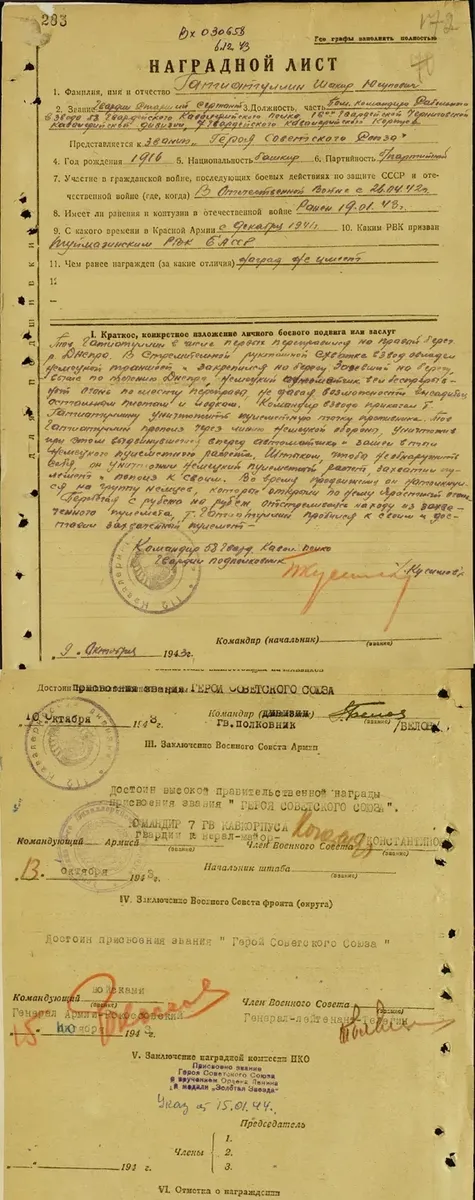 263
172
Вх 030658
6.12.43
Все графы заполнять полностью
НАГРАДНОЙ ЛИСТ
1. Фамилия, имя и отчество Гатиатуллин Шакир Юсупович
2. Звание Гвардии Старший сержант 3. Должность, часть Пом. командира Сабельного
взвода 58 Гвардейского Кавалерийского полка, 16ой Гвардейской Черниговской
Кавалерийской дивизии, 7 Гвардейского кавалерийского Корпуса.
Представляется к званию „Героя Советского Союза"
4. Год рождения 1916 5. Национальность башкир 6. Партийность б/партийный
7. Участие в гражданской войне, последующих боевых действиях по защите СССР и оте-
чественной войне (где, когда) В Отечественной Войне с 26.04.42г.
8. Имеет ли ранения и контузии в отечественной войне Ранен 19.01.43г.
9. С какого времени в Красной Армии с декабря 1941г. 10. Каким РВК призван
Туймазинским РВК БАССР
11. Чем ранее награжден (за какие отличия) наград не имеет
12.
I. Краткое, конкретное изложение личного боевого подвига или заслуг
Тов. Гатиатуллин в числе первых переправился на правый берег
р. Днепра. В стремительной рукопашной схватке взвод овладел
немецкой траншеей и закрепился на берегу. Засевший на берегу
выше по течению Днепра немецкий автоматчик вел беспрерыв-
ный огонь по месту переправы, не давал возможности высадить
остальной пехоты с лодок. Командир взвода приказал т.
Гатиатуллину уничтожить пулеметную точку противника. Тов.
Гатиатуллин прополз через линию немецкой обороны, уничтожив
при этом выдвинувшегося вперед автоматчика и зашел в тыл
немецкого пулеметного расчета. Штыком, чтобы не обнаружить
себя, он уничтожил немецкий пулеметный расчет, захватил пу-
лемет и пополз к своим. Во время продвижения он наткнул-
ся на группу немцев, которая открыли по нему яростный огонь.
Перебегая с рубежа на рубеж отстреливаясь на ходу из захва-
ченного пулемета, т. Гатиатуллин пробился к своим и дос-
тавил захваченный пулемет.
Командир 58 Гвард. Кавал. полка
Гвардии подполковник
/Кусимов/.
Командир (начальник)
(звание)
9. Октября 1943г.
Достоин присвоения звания ГЕРОЙ СОВЕТСКОГО СОЮЗА
10 октября 1943 Командир (дивизии)
ГВ. ПОЛКОВНИК /БЕЛОВ/
III. Заключение Военного Совета Армии
Достоин высокой правительственной награды
присвоения звания " ГЕРОЯ СОВЕТСКОГО СОЮЗА".
КОМАНДИР 7 ГВ КАВКОРПУСА
гвардии генерал-майор
Командующий Армией Член Военного Совета
(звание) (звание)
13 октября 1943 Начальник штаба
(звание)
IV. Заключение Военного Совета фронта (округа)
Достоин присвоения звания " Герой Советского Союза "
войсками
Командующий Член Военного Совета
(звание) (звание)
Генерал Армии-Рокоссовский Генерал-лейтенант-Телегин
15 октября 1943
V. Заключение наградной комиссии НКО
Присвоено звание
Героя Советского Союза
с вручением Ордена Ленина
и медали „Золотая Звезда"
Указ от 15.01.44.
Председатель
1.
Члены 2.
3.
194 г.
VI. Отметка о награждении